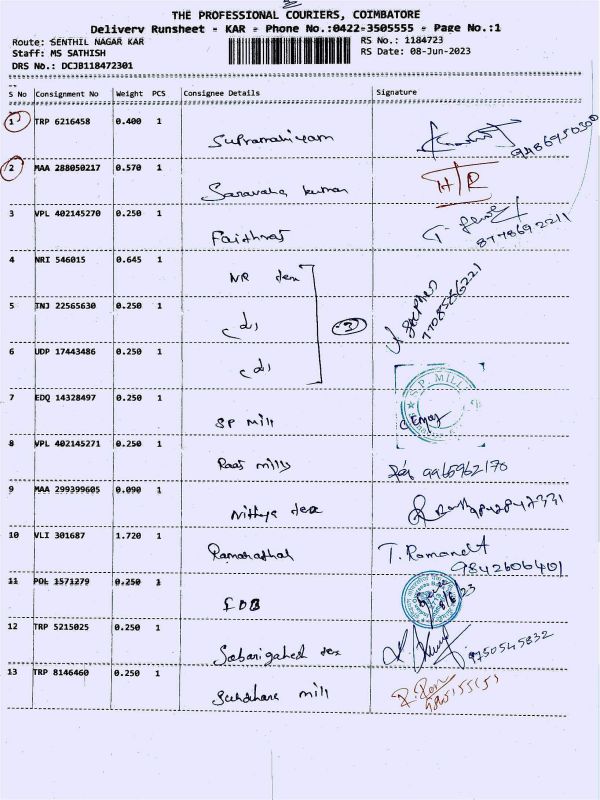 THE PROFESSIONAL COURIERS, COIMBATORE
Delivery Runsheet - KAR - Phone No.:0422-3505555 - Page No.:1
Route: SENTHIL NAGAR KAR RS No.: 1184723
Staff: MS SATHISH RS Date: 08-Jun-2023
DRS No.: DCJB118472301
S No Consignment No Weight PCS Consignee Details Signature
1 TRP 6216458 0.400 1
9486950300
2 MAA 288050217 0.570 1 Saravana kumar
3 VPL 402145270 0.250 1
8778692211
4 NRI 546015 0.645 1 NR tex
5 TNJ 22565630 0.250 1
3
7708586221
6 UDP 17443486 0.250 1
7 EDQ 14328497 0.250 1 SP mill SP. MILL
8 VPL 402145271 0.250 1 mills 9965962170
9 MAA 299399605 0.090 1 Nithya tex
10 VLI 301687 1.720 1 T.
9842606401
11 POL 1571279 0.250 1
12 TRP 5215025 0.250 1 tex 9750545832
13 TRP 8146460 0.250 1 mill